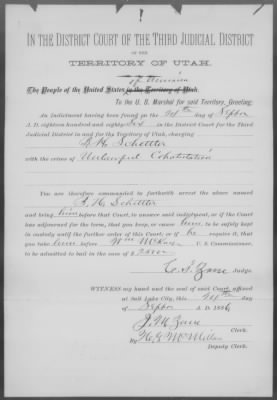 IN THE DISTRICT COURT OF THE THIRD JUDICIAL DISTRICT
OF THE
TERRITORY OF UTAH.
of America
The People of the United States in the Territory of Utah.
To the U. S. Marshal for said Territory, Greeting:
An Indictment having been found on the day of Septbr
A. D. eighteen hundred and eighty-six in the District Court for the Third
Judicial District in and for the Territory of Utah, charging
A. H. Schettler
with the crime of Unlawful Cohabitation
You are therefore commanded to forthwith arrest the above named
A. H. Schettler
and bring him before that Court, to answer said indictment, or if the Court
has adjourned for the term, that you keep, or cause him to be safely kept
in custody until the further order of this Court; or if he requires it, that
you take him before Wm McKay U. S. Commissioner,
to be admitted to bail in the sum of
C. S. Zane Judge.
WITNESS my hand and the seal of said Court, affixed
at Salt Lake City, this day
of Septbr A. D. 1886
Zane Clerk.
By H. G. McMillan
Deputy Clerk.